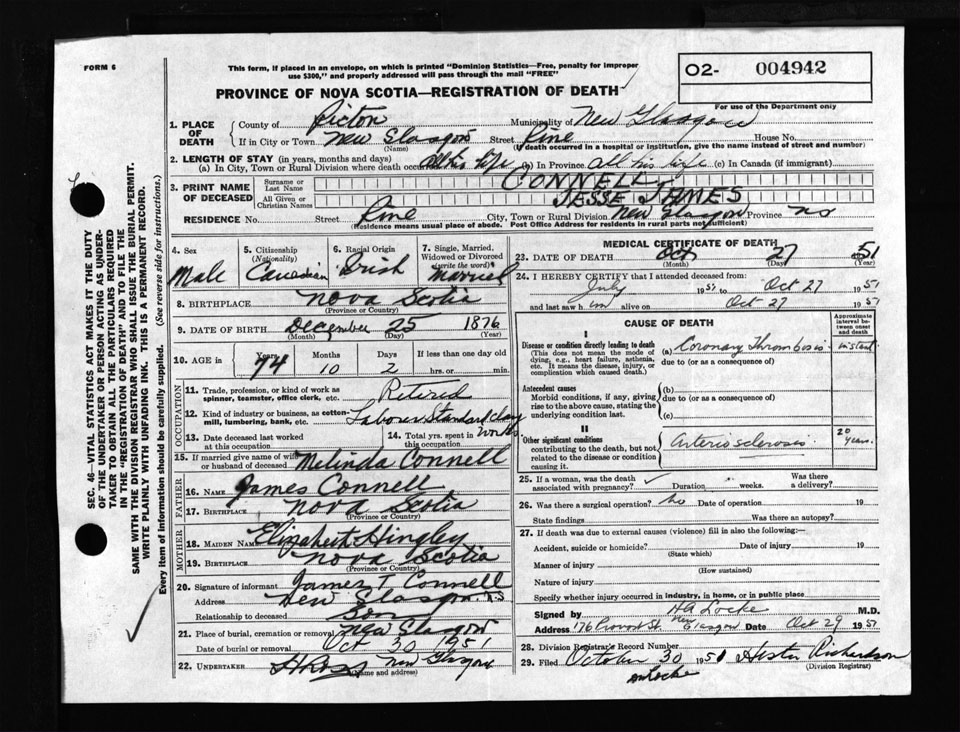 FORM 6
This form, if placed in an envelope, on which is printed "Dominion Statistics—Free, penalty for improper
use $300," and properly addressed will pass through the mail "FREE"
O2- 004942
PROVINCE OF NOVA SCOTIA—REGISTRATION OF DEATH
For use of the Department only
1. PLACE OF DEATH
County of Pictou Municipality of New Glasgow
If in City or Town New Glasgow Street Pine House No.
(Name) (If death occurred in a hospital or institution, give the name instead of street and number)
2. LENGTH OF STAY (in years, months and days)
(a) In City, Town or Rural Division where death occurred All his life (b) In Province All his life (c) In Canada (if immigrant)
3. PRINT NAME OF DECEASED
Surname or Last Name CONNELL
All Given or Christian Names JESSE JAMES
RESIDENCE No. Street Pine City, Town or Rural Division New Glasgow Province NS
(Residence means usual place of abode. Post Office Address for residents in rural parts not sufficient)
4. Sex Male
5. Citizenship (Nationality) Canadian
6. Racial Origin Irish
7. Single, Married, Widowed or Divorced (write the word) Married
8. BIRTHPLACE Nova Scotia
(Province or Country)
9. DATE OF BIRTH December 25 1876
(Month) (Day) (Year)
10. AGE in Years 74 Months 10 Days 2 If less than one day old hrs. or min.
OCCUPATION
11. Trade, profession, or kind of work as spinner, teamster, office clerk, etc. Retired
12. Kind of industry or business, as cotton-mill, lumbering, bank, etc. Labourer Standard Clay Works
13. Date deceased last worked at this occupation
14. Total yrs. spent in this occupation
15. If married give name of wife or husband of deceased Melinda Connell
FATHER
16. NAME James Connell
17. BIRTHPLACE Nova Scotia
(Province or Country)
MOTHER
18. MAIDEN NAME Elizabeth Hingley
19. BIRTHPLACE Nova Scotia
(Province or Country)
20. Signature of informant James T Connell
Address New Glasgow N.S
Relationship to deceased Son
21. Place of burial, cremation or removal New Glasgow
Date of burial or removal Oct 30 1951
22. UNDERTAKER New Glasgow
(Name and address)
MEDICAL CERTIFICATE OF DEATH
23. DATE OF DEATH Oct 27 51
(Month) (Day) (Year)
24. I HEREBY CERTIFY that I attended deceased from:
July 1951 to Oct 27 1951
and last saw him alive on Oct 27 1951
CAUSE OF DEATH
Approximate interval between onset and death
I
Disease or condition directly leading to death (a) Coronary Thrombosis instant
(This does not mean the mode of dying, e.g., heart failure, asthenia, etc. It means the disease, injury, or complication which caused death.)
due to (or as a consequence of)
Antecedent causes (b)
Morbid conditions, if any, giving rise to the above cause, stating the underlying condition last.
due to (or as a consequence of)
(c)
II
Other significant conditions contributing to the death, but not related to the disease or condition causing it.
Arteriosclerosis 20 years.
25. If a woman, was the death associated with pregnancy? Duration weeks. Was there a delivery?
26. Was there a surgical operation? no Date of operation 19
State findings Was there an autopsy?
27. If death was due to external causes (violence) fill in also the following:—
Accident, suicide or homicide? Date of injury 19
(State which)
Manner of injury
(How sustained)
Nature of injury
Specify whether injury occurred in industry, in home, or in public place
Signed by HA Locke M.D.
Address 176 Provost St. New Glasgow Date Oct 29 1951
28. Division Registrar's Record Number
29. Filed October 30 1951 Hester Richardson
(Division Registrar)
SEC. 46—VITAL STATISTICS ACT MAKES IT THE DUTY
OF THE UNDERTAKER OR PERSON ACTING AS UNDER-
TAKER TO OBTAIN ALL THE PARTICULARS REQUIRED
IN THE "REGISTRATION OF DEATH" AND TO FILE THE
SAME WITH THE DIVISION REGISTRAR WHO SHALL ISSUE THE BURIAL PERMIT.
WRITE PLAINLY WITH UNFADING INK. THIS IS A PERMANENT RECORD.
Every item of information should be carefully supplied. (See reverse side for instructions.)